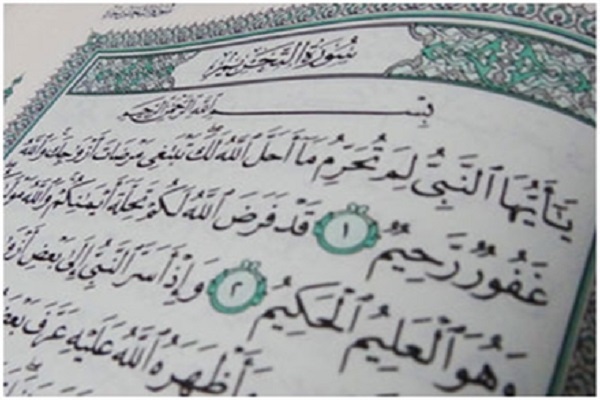 سُورَةُ التَّحْرِيمِ
بِسْمِ ٱللَّهِ ٱلرَّحْمَٰنِ ٱلرَّحِيمِ
يَٰٓأَيُّهَا ٱلنَّبِىُّ لِمَ تُحَرِّمُ مَآ أَحَلَّ ٱللَّهُ لَكَ تَبْتَغِى مَرْضَاتَ أَزْوَٰجِكَ وَٱللَّهُ
غَفُورٌ رَّحِيمٌ ١ قَدْ فَرَضَ ٱللَّهُ لَكُمْ تَحِلَّةَ أَيْمَٰنِكُمْ وَٱللَّهُ
وَهُوَ ٱلْعَلِيمُ ٱلْحَكِيمُ ٢ وَإِذْ أَسَرَّ ٱلنَّبِىُّ إِلَىٰ بَعْضِ
وَأَظْهَرَهُ ٱللَّهُ عَلَيْهِ عَرَّفَ